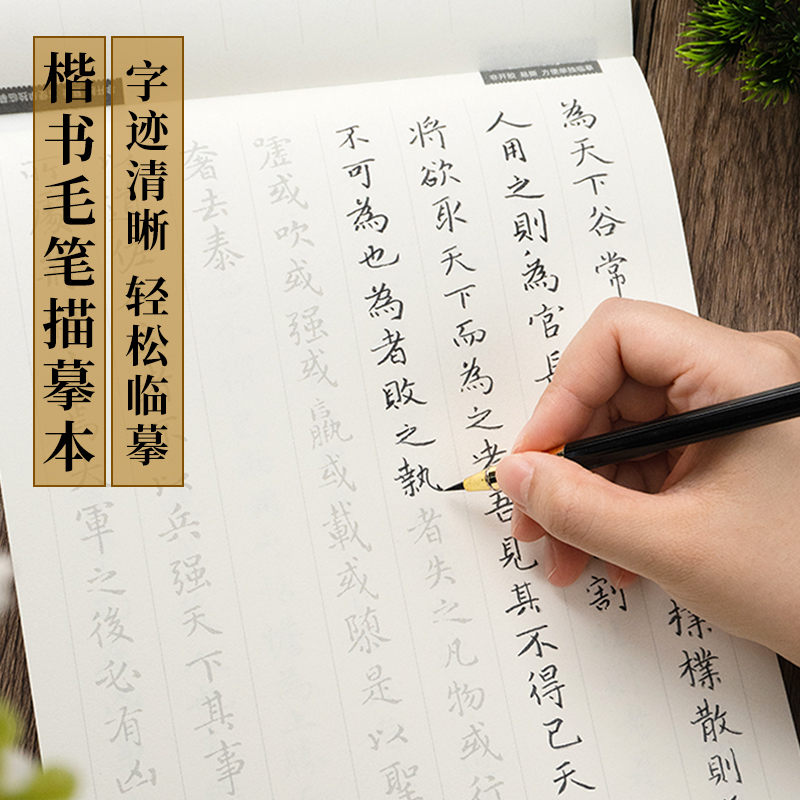 楷书毛笔描摹本
字迹清晰 轻松临摹
為天下谷常
樸樸散則
人用之則為官長
割
将欲取天下而為之者吾見其不得已天
不可為也為者敗之執者失之凡物或行
噓或吹或强或羸或載或隳是以聖
奢去泰
以兵强天下其事
軍之後必有凶